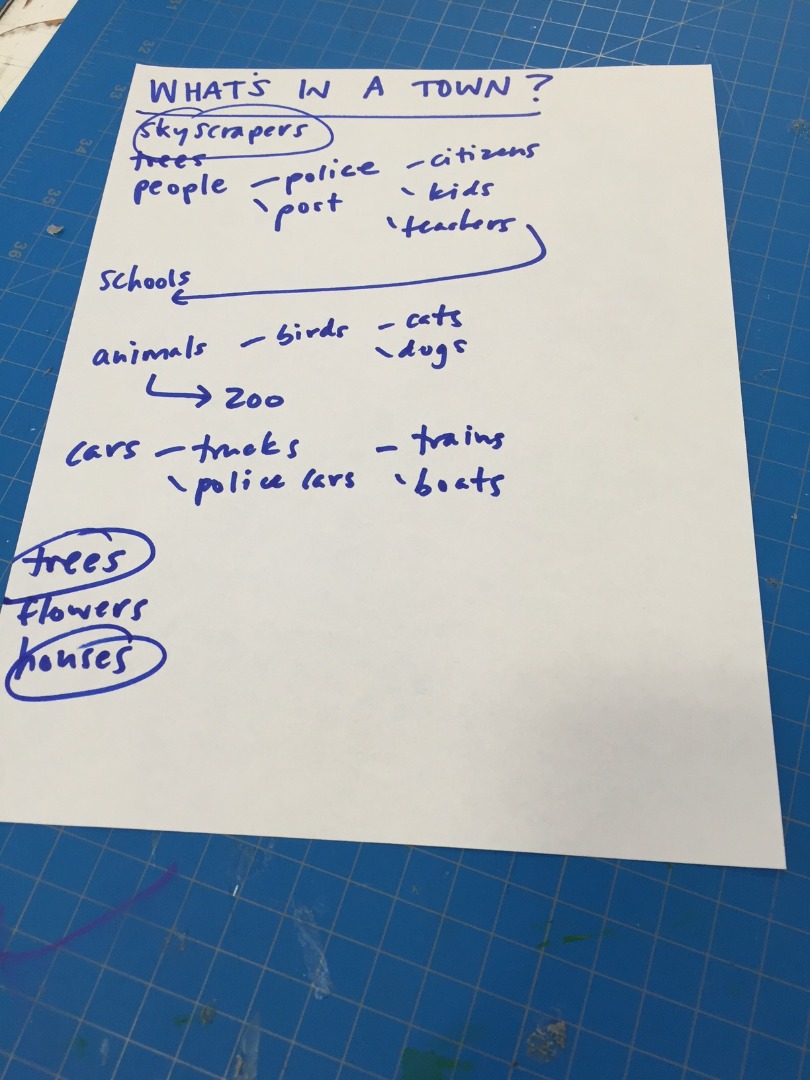 WHAT'S IN A TOWN?
skyscrapers
trees
people – police – citizens
\ post \ kids
\ teachers
schools
animals – birds – cats
\ dogs
→ zoo
cars – trucks – trains
\ police cars \ boats
trees
flowers
houses
36
35
33
32